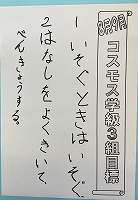 8月9月
コスモス学級3組目標
1 いそぐときはいそぐ。
2 はなしをよくきいて
べんきょうする。